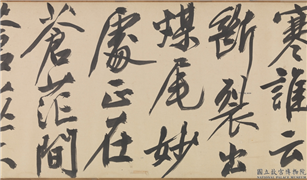 寒誰云
斷裂出
煤尾妙
處正在
蒼茫間
國立故宮博物院
NATIONAL PALACE MUSEUM